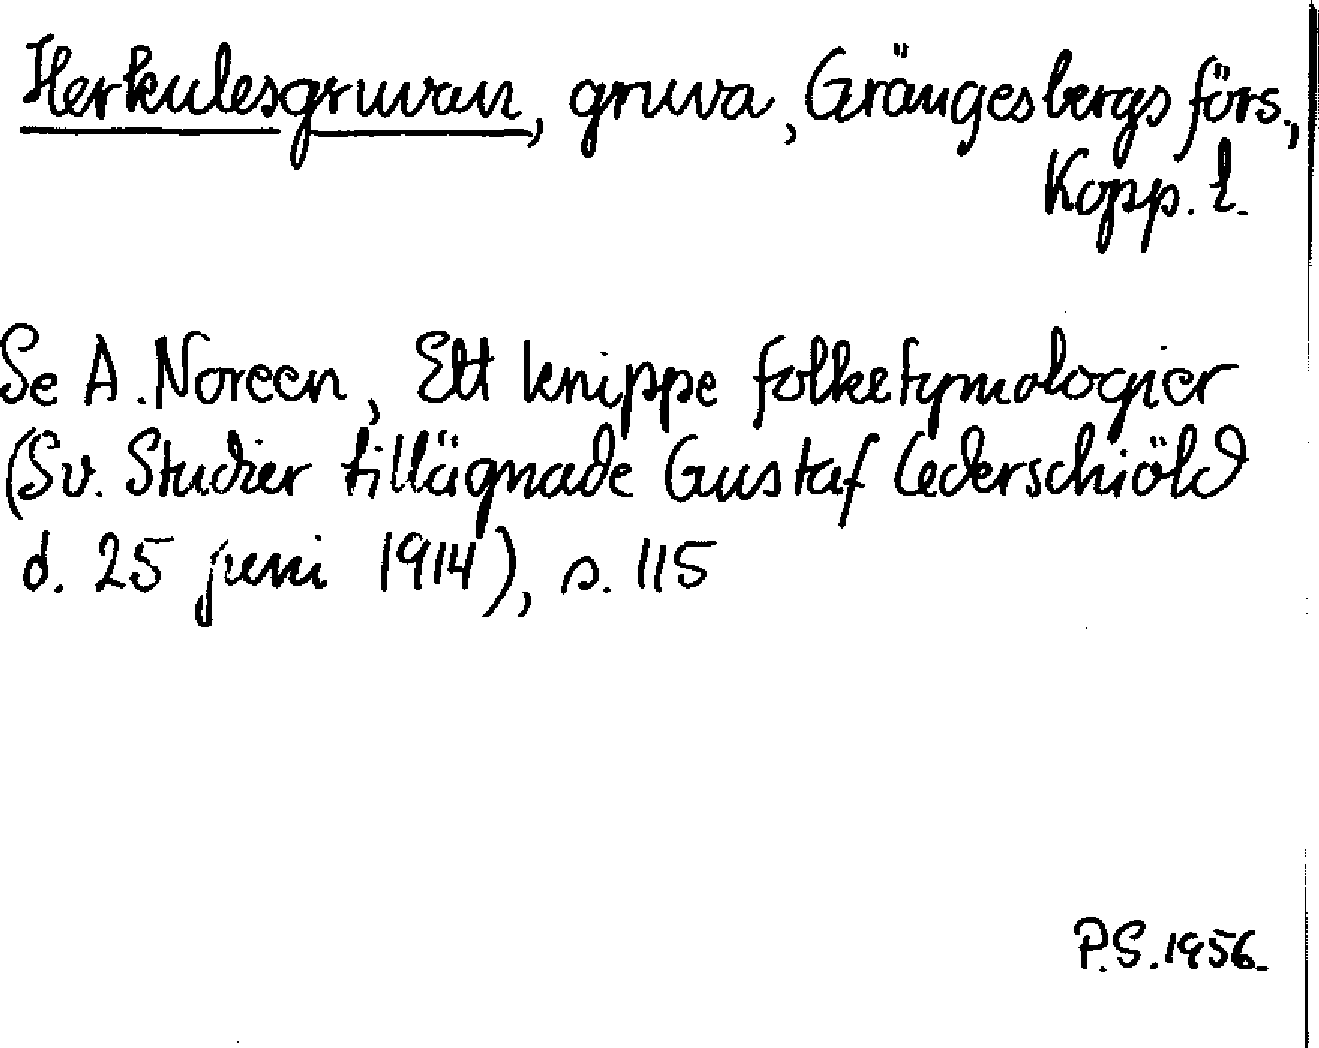 Herkulesgruvan, gruva, Grängesbergs förs.,
Kopp. l.
Se A. Noreen, Ett knippe folketymologier
(Sv. Studier tillägnade Gustaf Cederschiöld
d. 25 juni 1914), s. 115
P.S. 1956.